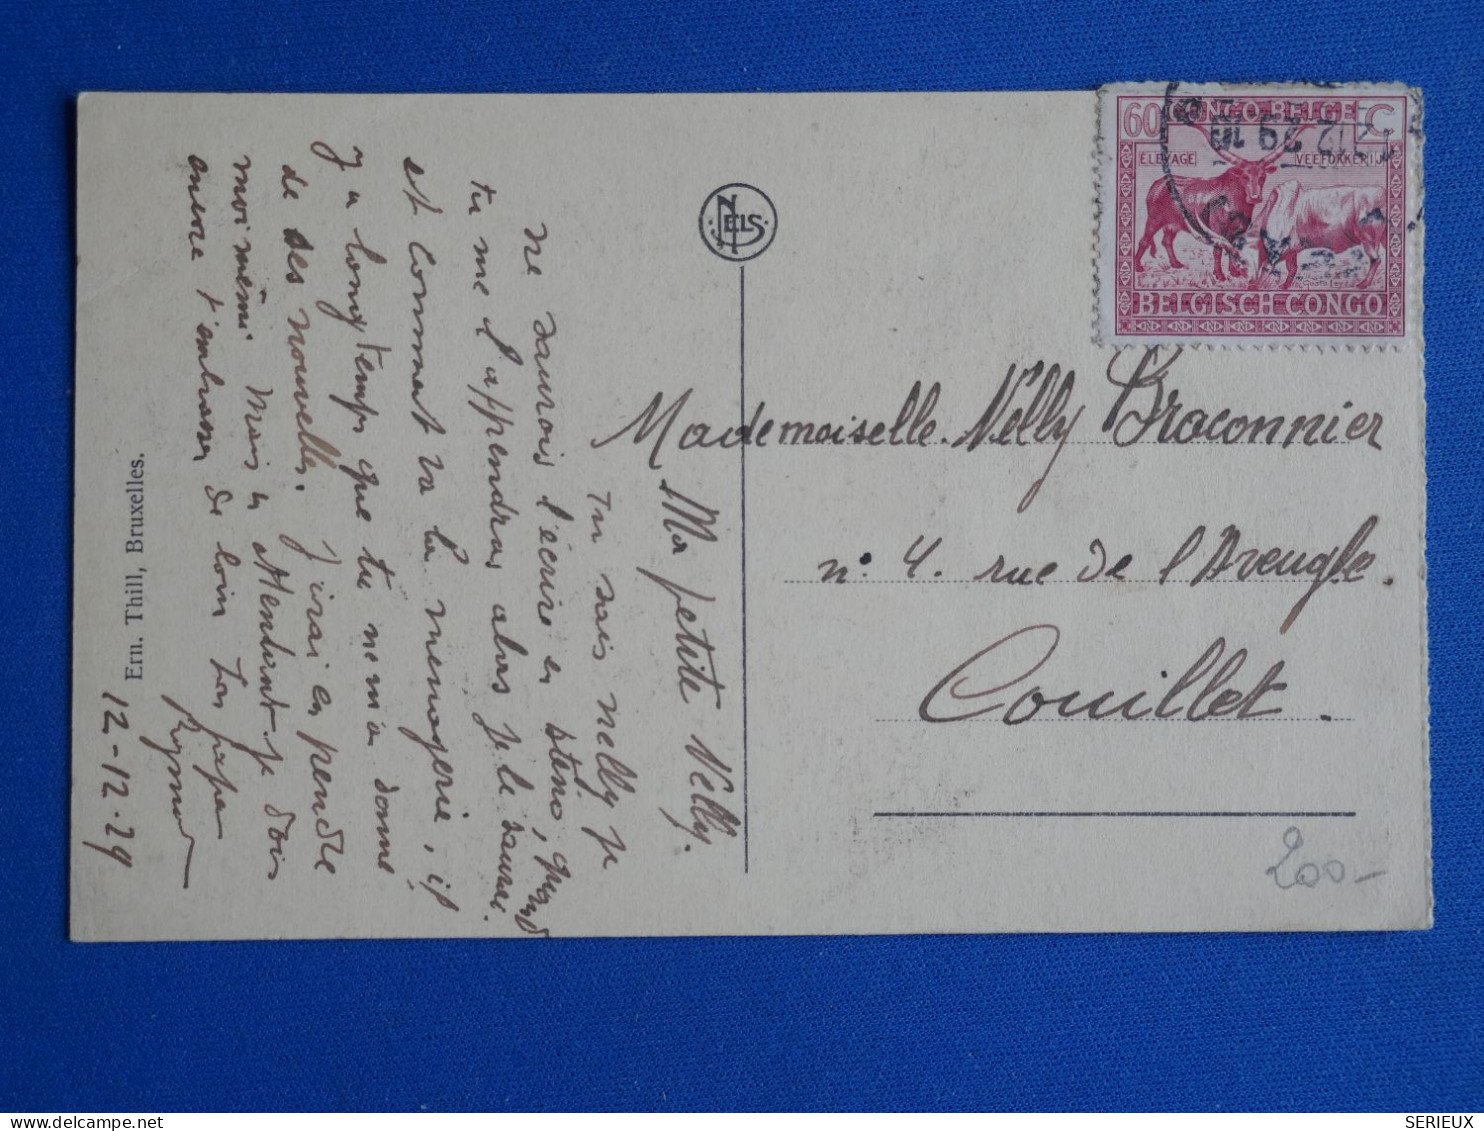 Ma petite Nelly.
Tu sais nelly je
ne saurois l'écrire en sténo, quand
tu me l'apprendras alors je le saurai.
et comment va la menagerie, il
y a longtemps que tu ne m'a donné
de ses nouvelles. J'irai en prendre
moi même mais en attendant je dois
encore t'embrasser de loin ton papa
Raymond
12-12-29
Ern. Thill, Bruxelles.
NELS
60 CONGO BELGE C
ELEVAGE VEEFOKKERIJ
12 29
BELGISCH-CONGO
Mademoiselle Nelly Braconnier
n° 4. rue de l'Aveugle.
Couillet.
200-
SERIEUX